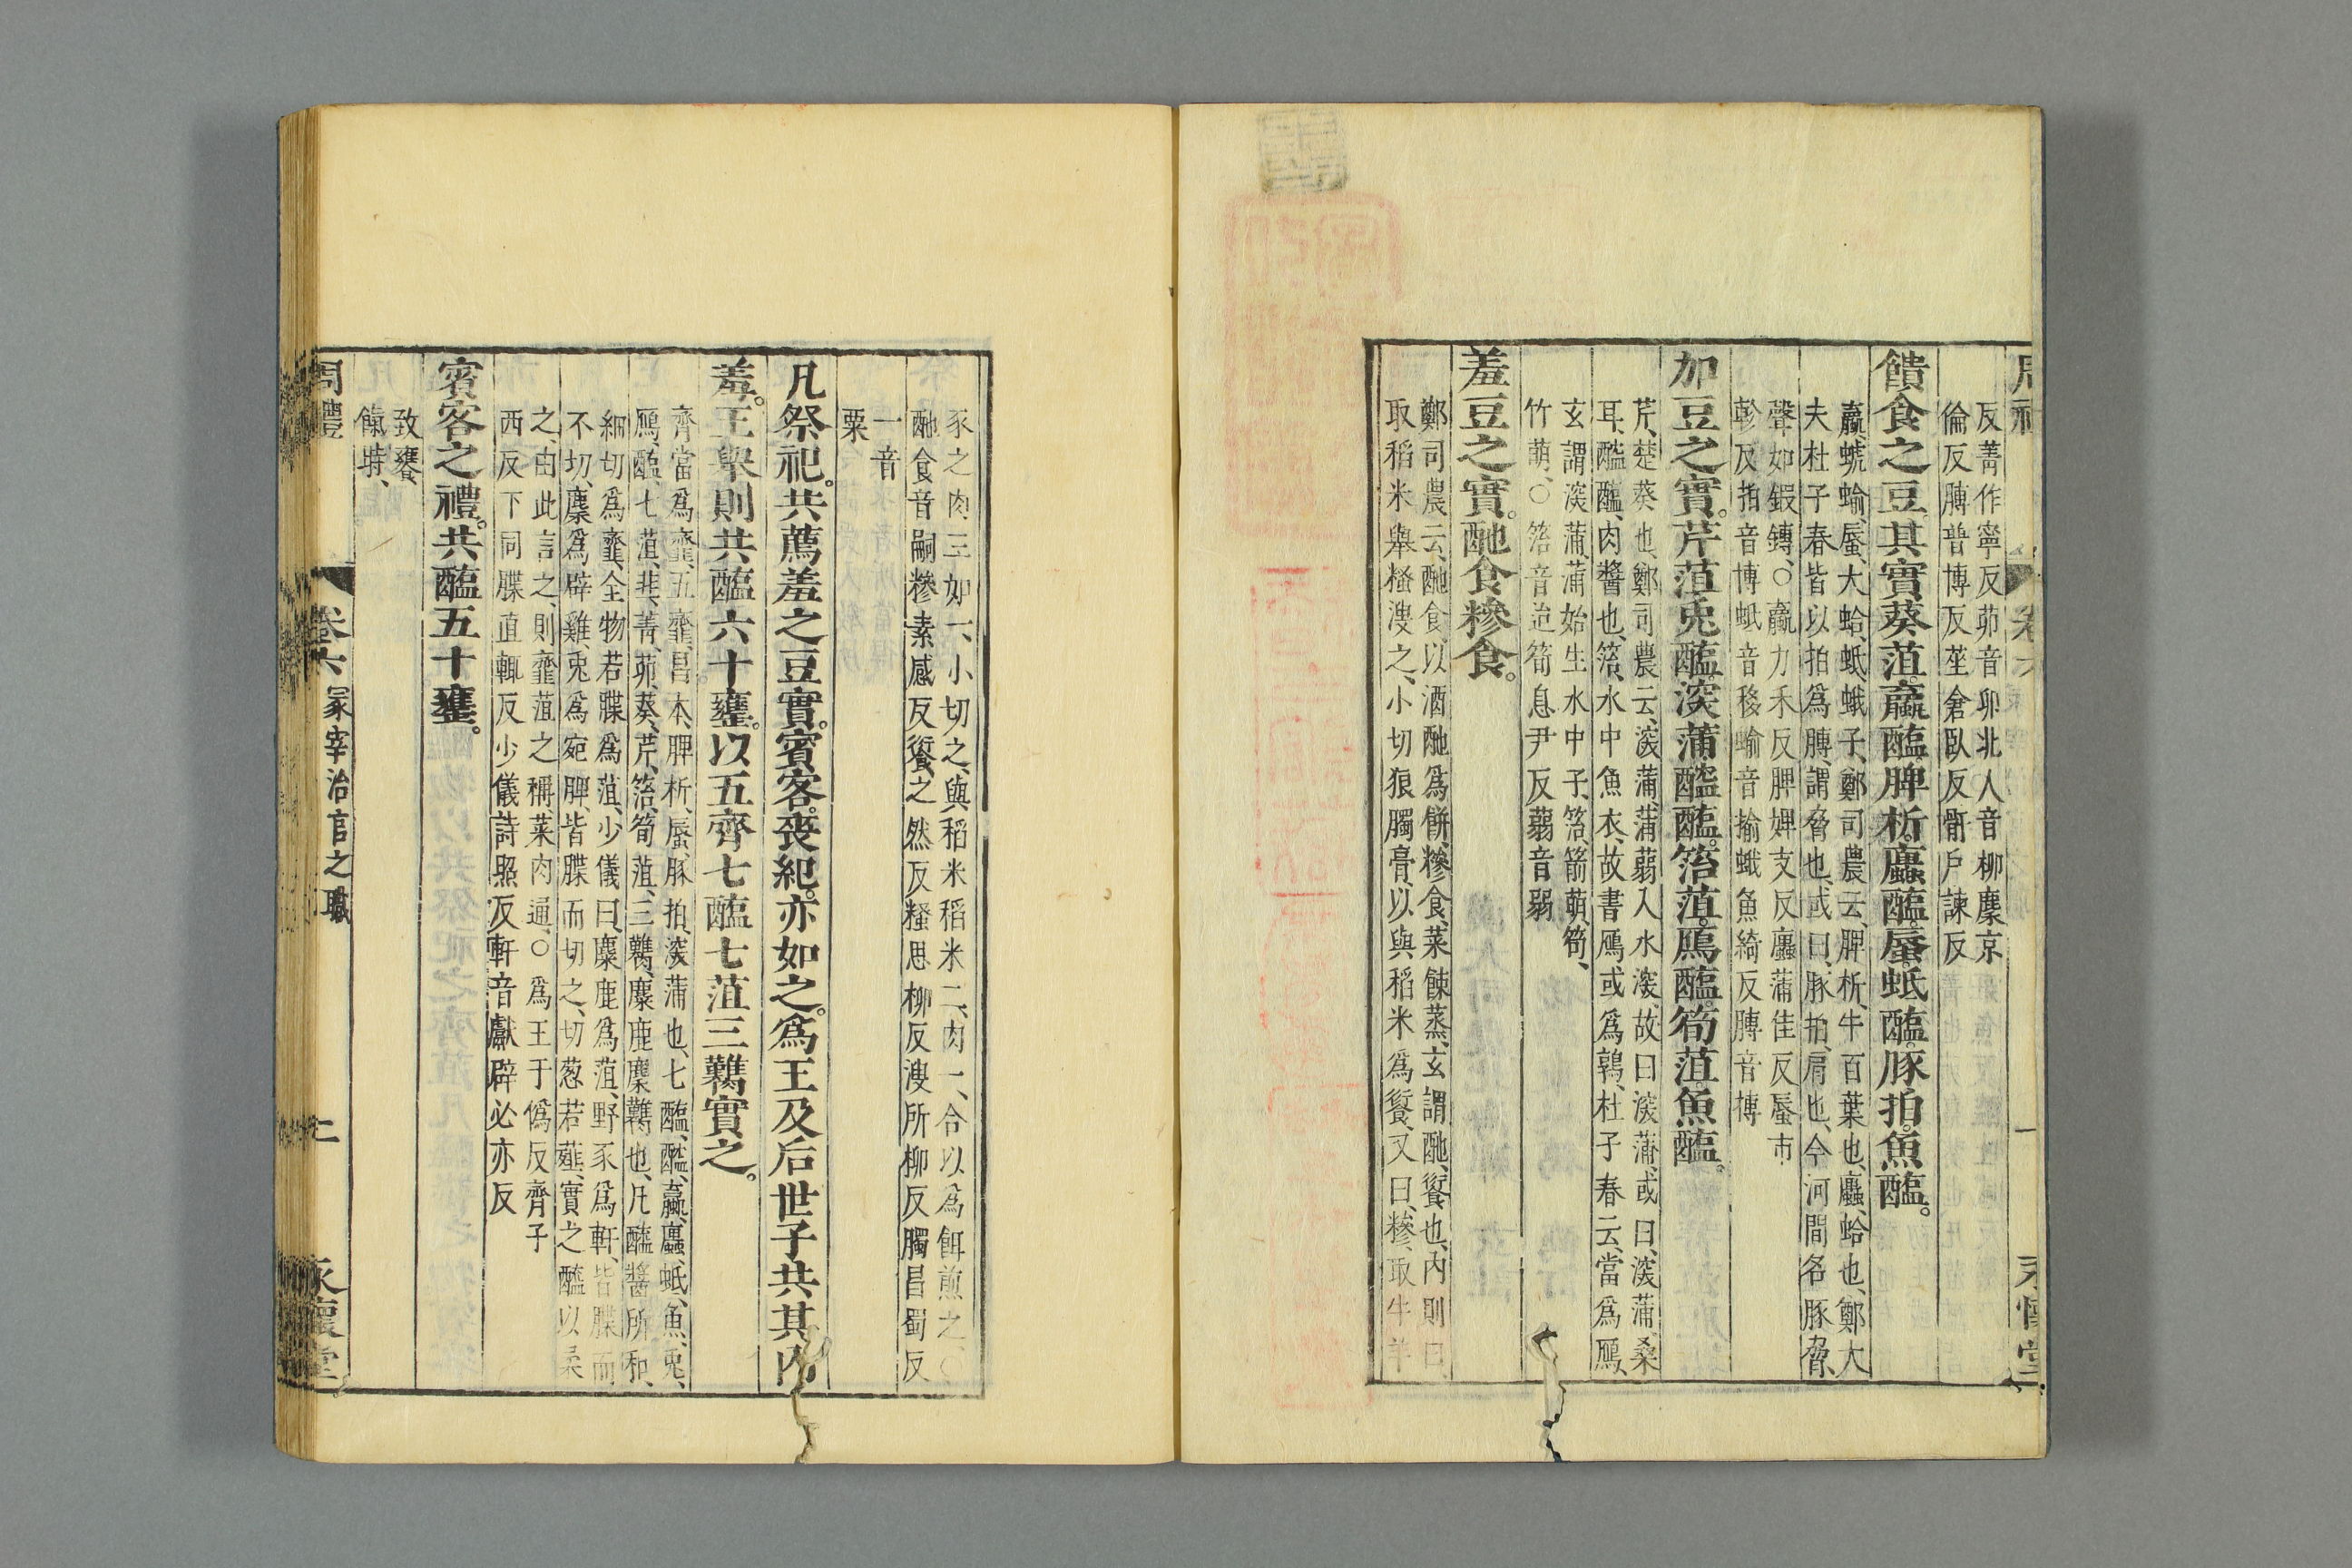 反菁作寧反茆音卯北人音柳麋京
倫反膊普博反莝倉臥反骭戶諫反
饋食之豆其實葵菹。蠃醢。脾析。蠯醢。蜃。蚳醢。豚拍。魚醢。
蠃、螔蝓、蜃、大蛤、蚳、蛾子、鄭司農云、脾析、牛百葉也、蠯、蛤也、鄭大
夫杜子春皆以拍爲膊、謂脅也、或曰、豚拍、肩也、今河間名豚脅、
聲如鍜鎛、○蠃力禾反脾婢支反蠯蒲佳反蜃市
軫反拍音博蚳音移蝓音揄蛾魚綺反膊音博
加豆之實。芹菹。兎醢。深蒲。醓醢。箈菹。鴈醢。筍菹。魚醢。
芹、楚葵也、鄭司農云、深蒲、蒲蒻入水深、故曰深蒲、或曰、深蒲、桑
耳、醓醢、肉醬也、箈、水中魚衣、故書鴈或爲鶉、杜子春云、當爲鴈、
玄謂深蒲、蒲始生水中子、箈、箭萌、筍、
竹萌、○箈音迨筍息尹反蒻音弱
羞豆之實。酏食。糝食。
鄭司農云、酏食、以酒酏爲餅、糝食、菜餗蒸、玄謂酏、餈也、內則曰、
取稻米、舉糔溲之、小切狼臅膏、以與稻米爲餈、又曰、糝、取牛羊
豕之肉三如一、小切之、與稻米稻米二、肉一、合以為餌煎之、○
酏食音嗣糝素感反餈之然反糔思柳反溲所柳反臅昌蜀反
一音
粟
凡祭祀。共薦羞之豆實。賓客。喪紀。亦如之。爲王及后世子共其內
羞。王舉則共醢六十罋。以五齊七醢七菹三臡實之。
齊當爲齏、五齏、昌本、脾析、蜃、豚拍、深蒲也、七醢、醓、蠃、蠯、蚳、魚、兎、
鴈、醢、七菹、韭、菁、茆、葵、芹、箈、筍菹、三臡、麋鹿麇臡也、凡醢醬所和、
細切爲齏、全物若䐑爲菹、少儀曰、麋鹿爲菹、野豕爲軒、皆䐑而
不切、麇爲辟雞、兎爲宛脾、皆䐑而切之、切葱若薤、實之醯以柔
之、由此言之、則齏菹之稱、菜肉通、○爲王于僞反齊子
西反下同䐑直輒反少儀詩照反軒音獻辟必亦反
賓客之禮。共醢五十罋。
致饔
餼時、
周禮 卷六 冢宰治官之職 七 永懷堂